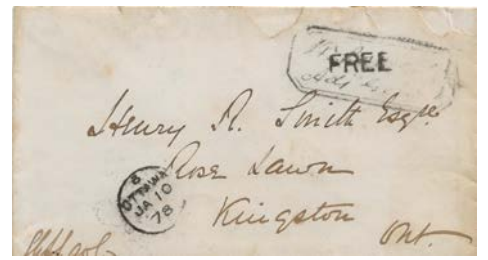 FREE
Henry R. Smith Esqre.
Rose Lawn
Kingston
Ont.
8
OTTAWA
JA 10
78